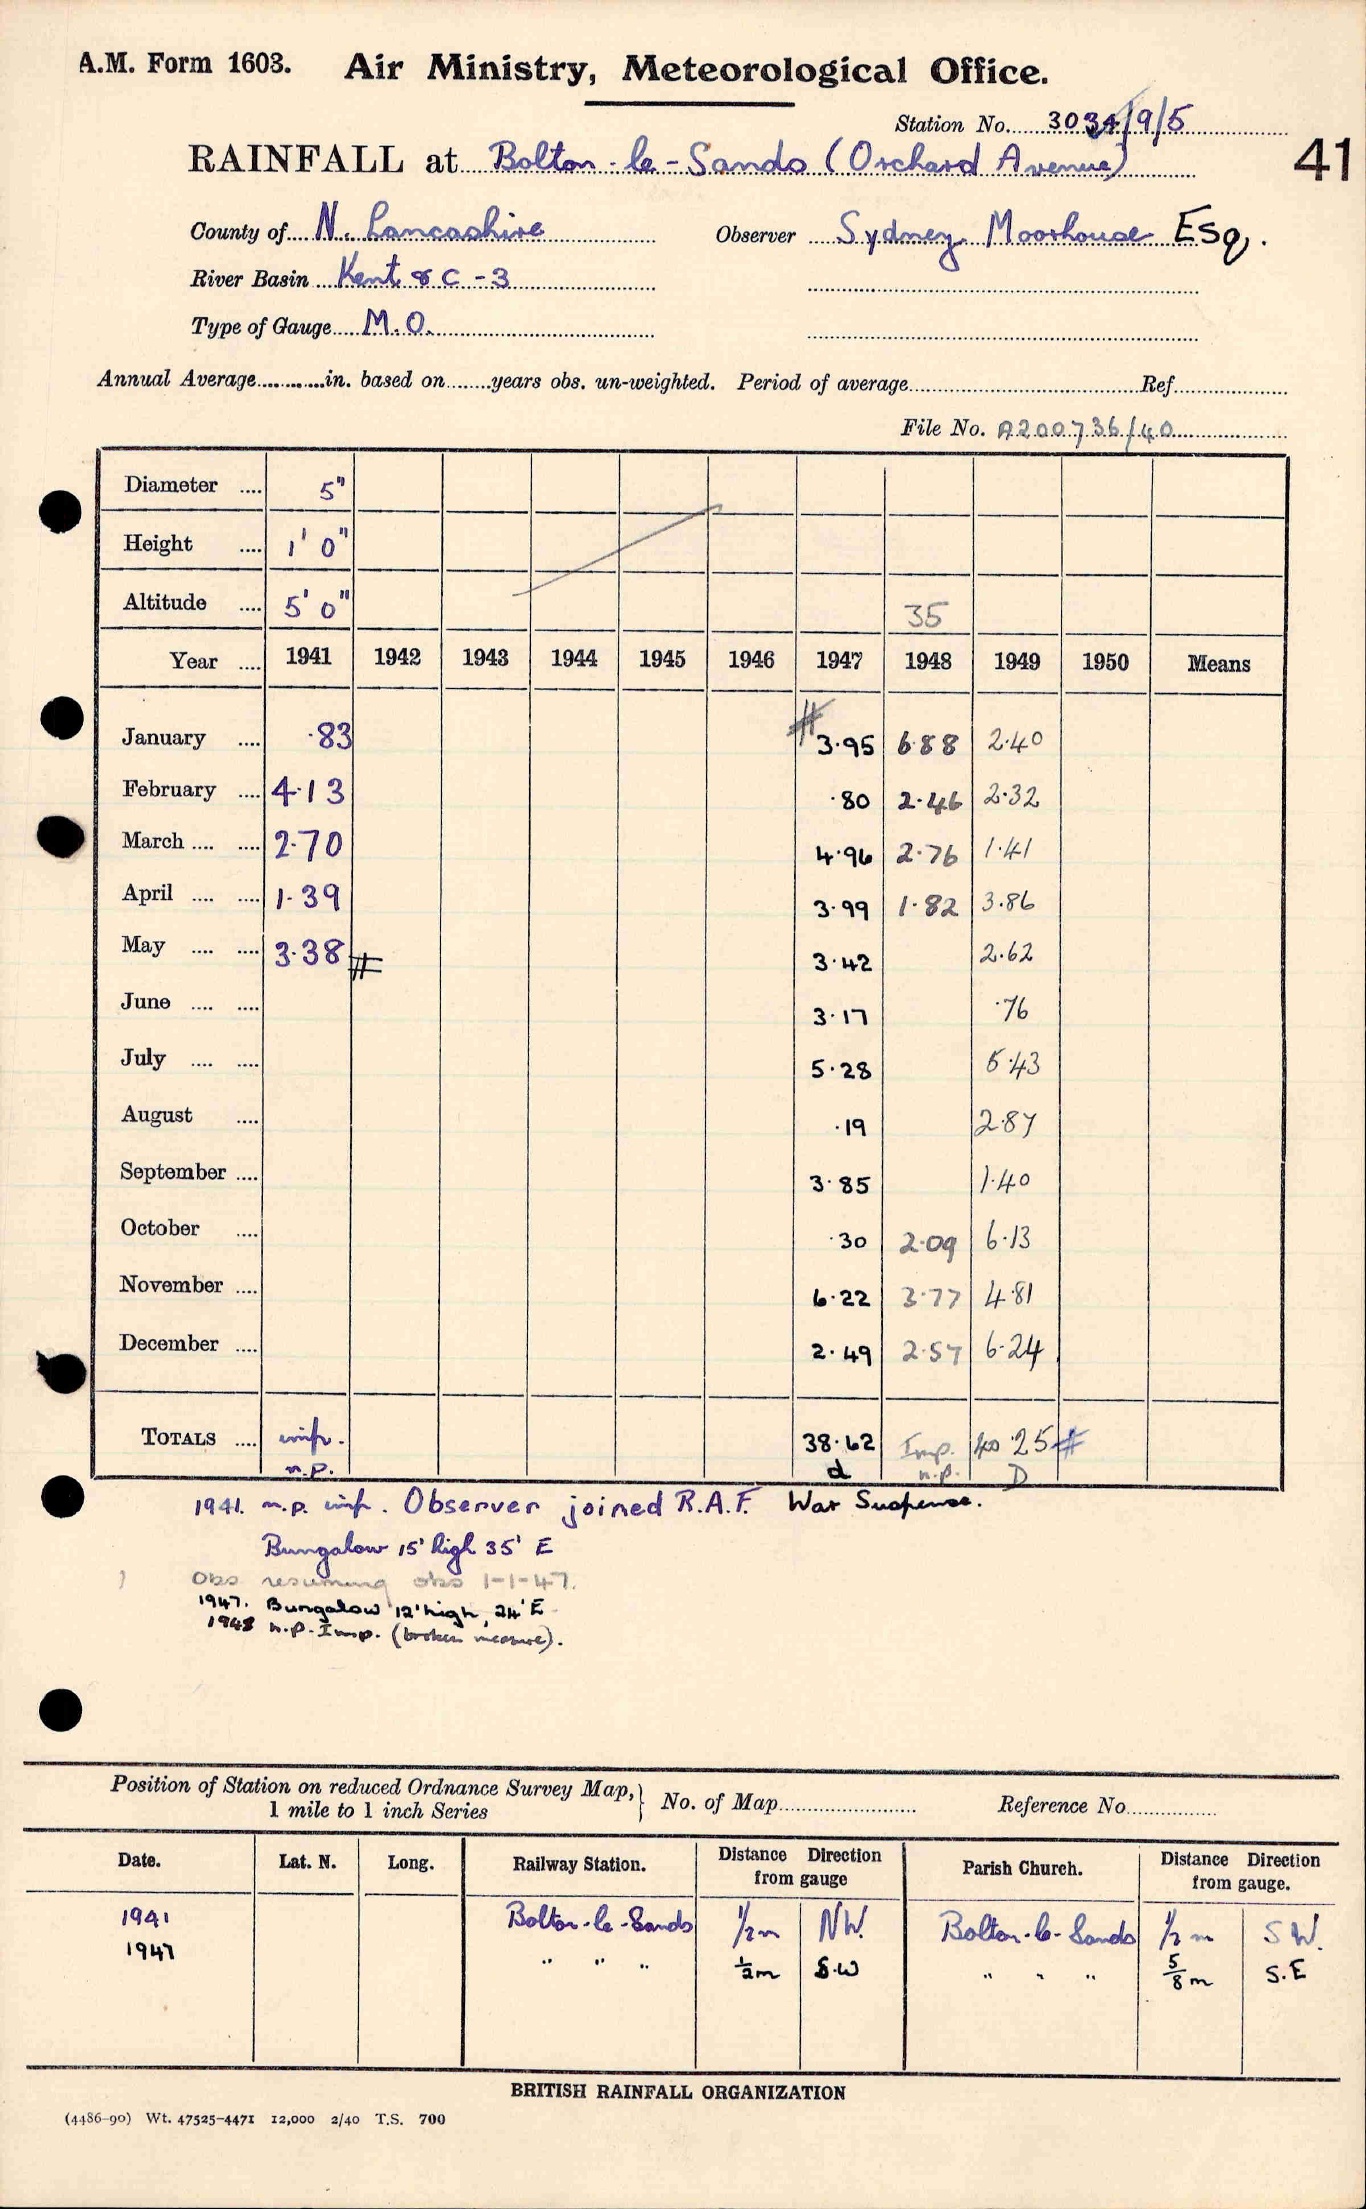 A.M. Form 1603. Air Ministry, Meteorological Office.
Station No. 3034/9/5
41
RAINFALL at Bolton-le-Sands (Orchard Avenue)
County of N. Lancashire Observer Sydney Moorhouse Esq.
River Basin Kent & C - 3
Type of Gauge M.O.
Annual Average in. based on years obs. un-weighted. Period of average Ref
File No. A200736/40
Diameter .... 5"
Height .... 1' 0"
Altitude .... 5' 0" 35
Year .... 1941 1942 1943 1944 1945 1946 1947 1948 1949 1950 Means
January .... ·83 # 3·95 6·88 2·40
February .... 4·13 ·80 2·46 2·32
March .... .... 2·70 4·96 2·76 1·41
April .... .... 1·39 3·99 1·82 3·86
May .... .... 3·38 # 3·42 2·62
June .... .... 3·17 ·76
July .... .... 5·28 5·43
August .... ·19 2·87
September .... 3·85 1·40
October .... ·30 2·09 6·13
November .... 6·22 3·77 4·81
December .... 2·49 2·57 6·24
TOTALS .... imp. 38·62 Imp. 40·25 #
n.p. d n.p. D
1941. n.p. imp. Observer joined R.A.F. War Suspense.
Bungalow 15' high 35' E
Obs resuming obs 1-1-47.
1947. Bungalow 12' high, 24' E
1948 n.p. Imp. (broken measure).
Position of Station on reduced Ordnance Survey Map, } No. of Map Reference No.
1 mile to 1 inch Series
Date. Lat. N. Long. Railway Station. Distance Direction from gauge Parish Church. Distance Direction from gauge.
1941 Bolton-le-Sands 1/2 m N.W. Bolton-le-Sands 1/2 m S.W.
1947 " " " 1/2 m S.W " " " 5/8 m S.E
BRITISH RAINFALL ORGANIZATION
(4486-90) Wt. 47525-4471 12,000 2/40 T.S. 700